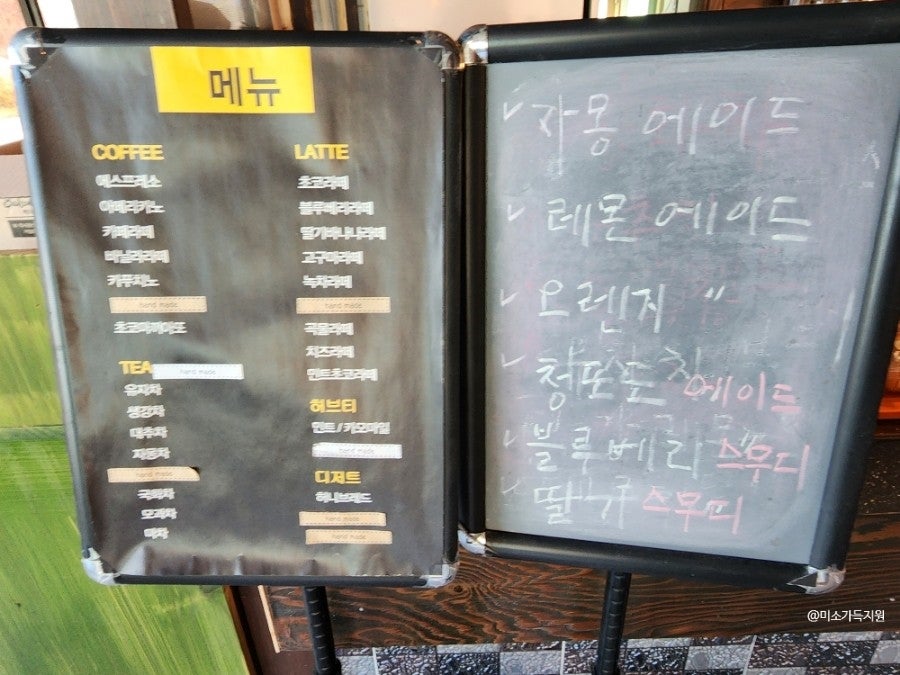 메뉴
COFFEE
에스프레소
아메리카노
카페라떼
바닐라라떼
카푸치노
hand made
초코마끼아또
TEA
hand made
유자차
생강차
대추차
자몽차
hand made
국화차
모과차
마차
LATTE
초코라떼
블루베리라떼
딸기바나나라떼
고구마라떼
녹차라떼
hand made
곡물라떼
치즈라떼
민트초코라떼
허브티
민트 / 카모마일
hand made
디저트
허니브레드
hand made
hand made
✓ 자몽 에이드
✓ 레몬 에이드
✓ 오렌지 〃
✓ 청포도 에이드
✓ 블루베리 스무디
✓ 스무디
@미소가득지원